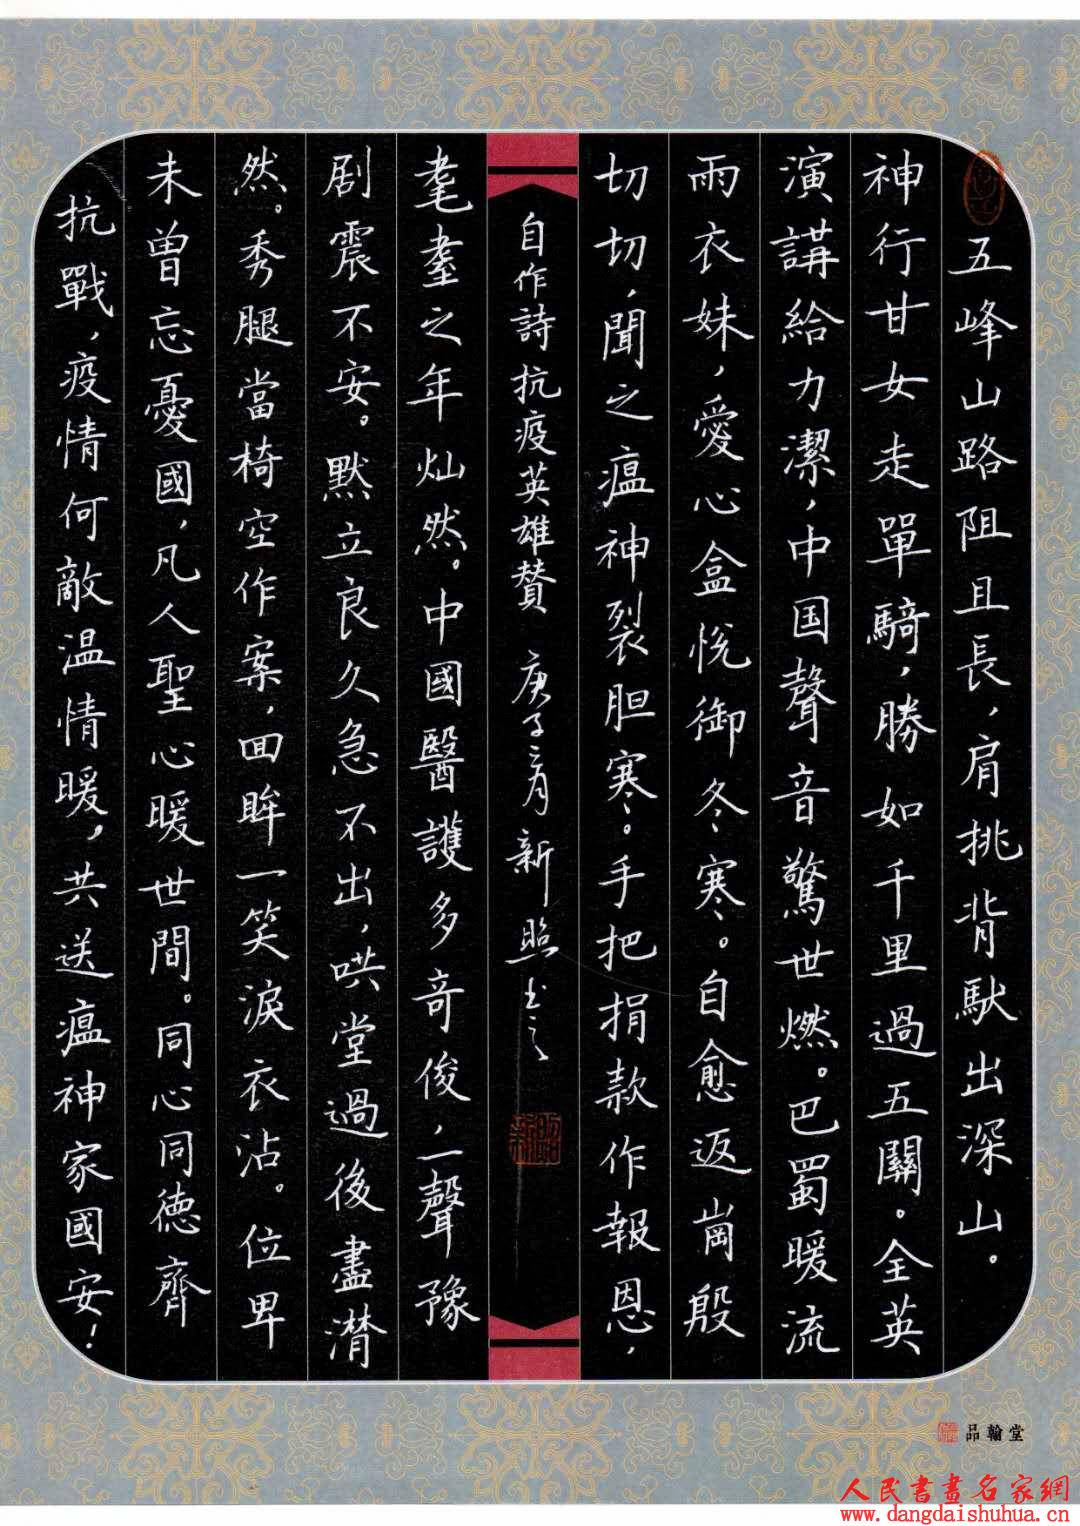 五峰山路阻且長，肩挑背馱出深山。
神行甘女走單騎，勝如千里過五關。全英
演講給力潔，中国聲音驚世燃。巴蜀暖流
雨衣妹，愛心盒悅御冬寒。自愈返崗殷
切切，聞之瘟神裂胆寒。手把捐款作報恩，
自作詩抗疫英雄贊 庚子二月新照书之
耄耋之年灿然。中國醫護多奇俊，一聲豫
剧震不安。默立良久急不出，哄堂過後盡潸
然。秀腿當椅空作案，回眸一笑淚衣沾。位卑
未曾忘憂國，凡人聖心暖世間。同心同德齊
抗戰，疫情何敵温情暖，共送瘟神家國安！
品翰堂
人民書畫名家網
www.dangdaishuhua.cn